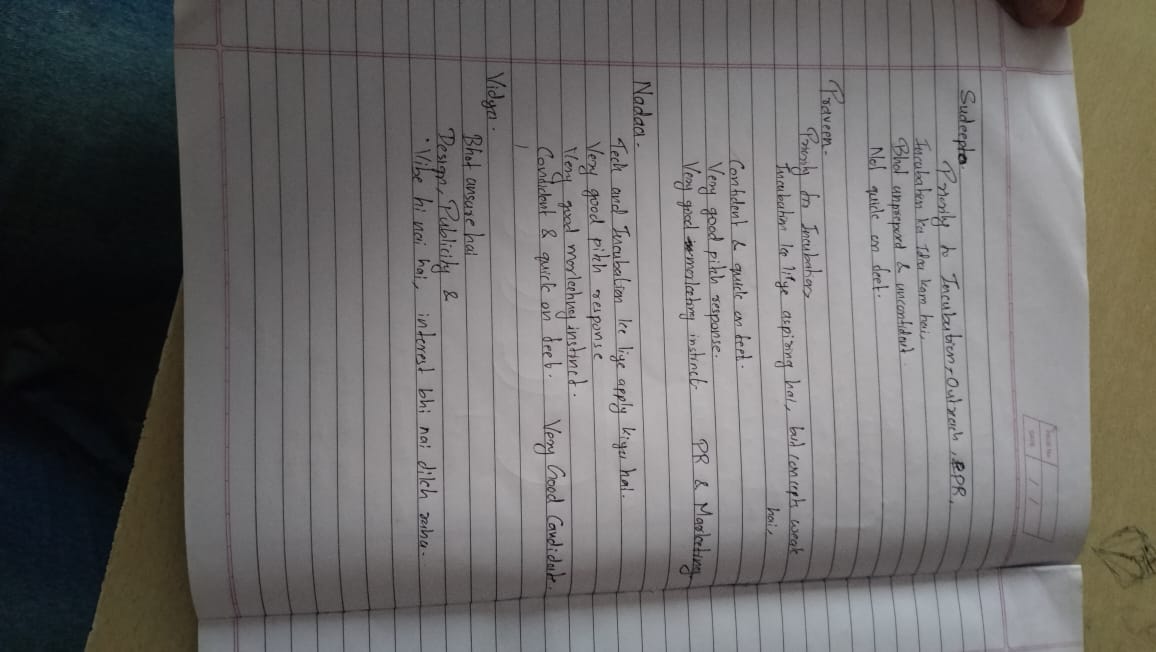 Page No.
Date / /
Sudeepta.
Priority to Incubation, Outreach, PR.
Incubation ka Idea kam hai,
Bhot unprepard & unconfident
Not quick on feet.
Praveen.
Priority for Incubation
Incubation ke liye aspiring hai, but concepts weak
hai,
Confident & quick on feet.
Very good pitch response.
Very good marketing instinct. PR & Marketing.
Nadaa.
Tech and Incubation ke liye apply kiya hai.
Very good pitch response
Very good marketing instinct.
Confident & quick on feet. Very Good Candidate.
Vidya.
Bhot unsure hai
Design, Publicity &
Vibe hi nai hai, interest bhi nai dikh raha.